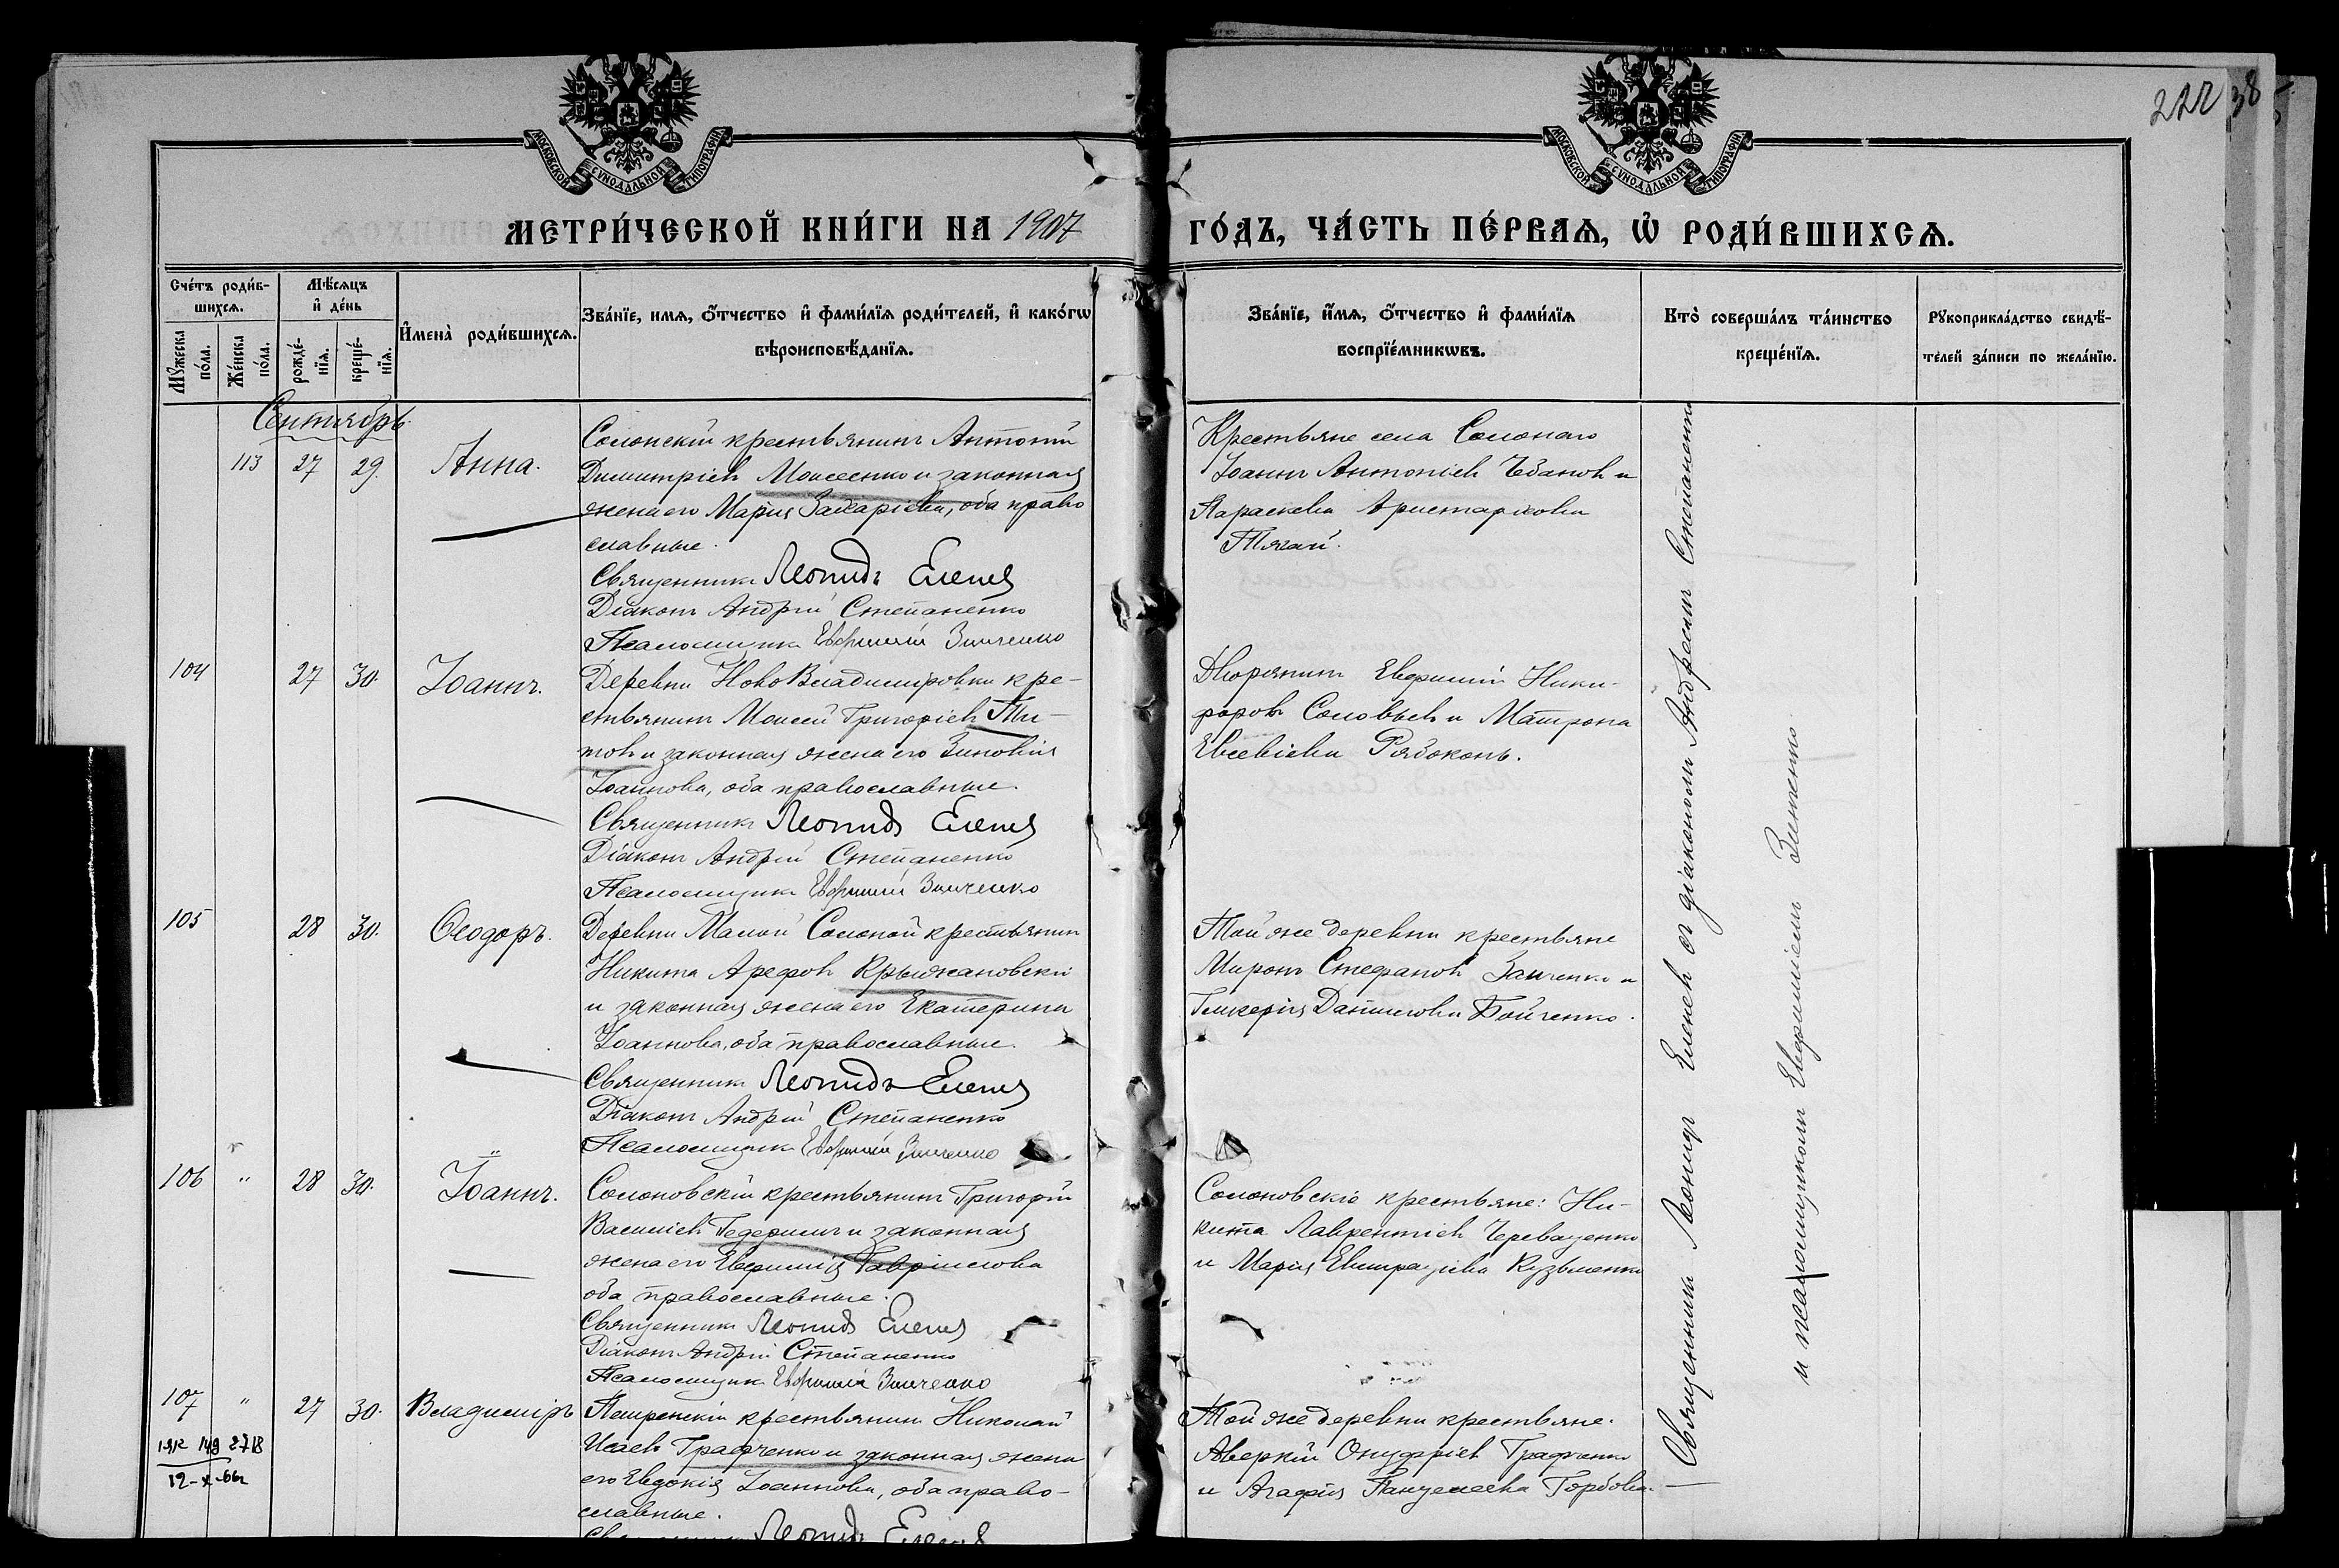 222 38
МОСКОВСКОЙ СѴНОДАЛЬНОЙ ТИПОГРАФІИ
МОСКОВСКОЙ СѴНОДАЛЬНОЙ ТИПОГРАФІИ
МЕТРИ́ЧЕСКОЙ КНИ́ГИ НА 1907 ГО́ДЪ, ЧА́СТЬ ПЕ́РВАЯ, Ѡ҆ РОДИ́ВШИХСѦ.
Сче́тъ роди́в-
шихсѧ.
Мꙋжеска по́ла.
Же́нска по́ла.
Мѣ́сѧцъ
и҆ де́нь
рожде́-нїѧ.
креще́-нїѧ.
И҆мена̀ роди́вшихсѧ.
Зва́нїе, имѧ, ѻ҆́тчество и҆ фами́лїѧ роди́телей, и҆ како́гѡ
вѣроисповѣ́данїѧ.
Зва́нїе, и҆́мѧ, ѻ҆́тчество и҆ фами́лїѧ
воспрїе́мникѡвъ.
Кто̀ соверша́лъ та́инство
креще́нїѧ.
Рꙋкоприкла́дство свидѣ́-
телей за́писи по жела́нїю.
Сентябрь
113 27 29. Анна.
Солонскій крестьянинъ Антоній
Димитріевъ Моисеенко и законная
жена его Марія Захаріева, оба право
славные.
Священникъ Леонидъ Еленевъ
Діаконъ Андрей Степаненко
Псаломщикъ Евфимій Зинченко
Крестьяне села Солонаго
Іоаннъ Антоніевъ Чабановъ и
Параскева Аристархова
Тягай.
104 27 30. Іоаннъ.
Деревни НовоВладимировки кре-
стьянинъ Моисей Григоріевъ Ти-
товъ и законная жена его Зиновія
Іоаннова, оба православные.
Священникъ Леонидъ Еленевъ
Діаконъ Андрей Степаненко
Псаломщикъ Евфимій Зинченко
Дворянинъ Евфимій Ники-
форовъ Соловьевъ и Матрона
Евсевіева Рябоконь.
105 28 30. Ѳеодоръ.
Деревни Малой Солоной крестьянинъ
Никита Арефовъ Крыжановскій
и законная жена его Екатерина
Іоаннова, оба православные.
Священникъ Леонидъ Еленевъ
Діаконъ Андрей Степаненко
Псаломщикъ Евфимій Зинченко
Той же деревни крестьяне
Миронъ Стефановъ Заиченко и
Гликерія Даниилова Бойченко.
106 " 28 30. Іоаннъ.
Солоновскій крестьянинъ Григорій
Василіевъ и законная
жена его Евфимія Гавріилова
оба православные.
Священникъ Леонидъ Еленевъ
Діаконъ Андрей Степаненко
Псаломщикъ Евфимій Зинченко
Солоновскіе крестьяне: Ни-
кита Лаврентіевъ Череващенко
и Марія Евстратіева Кузьменко
107 " 27 30. Владиміръ
12-X-66г
Петренскій крестьянинъ Николай
Исаевъ Графченко и законная жена
его Евдокія Іоаннова, оба право-
славные.
Леонидъ Еленевъ
Той же деревни крестьяне.
Аверкій Онуфріевъ Графченко
и Агафія Горбова.
Священникъ Леонидъ Еленевъ съ діакономъ Андреемъ Степаненко
и псаломщикомъ Евфиміемъ Зинченко